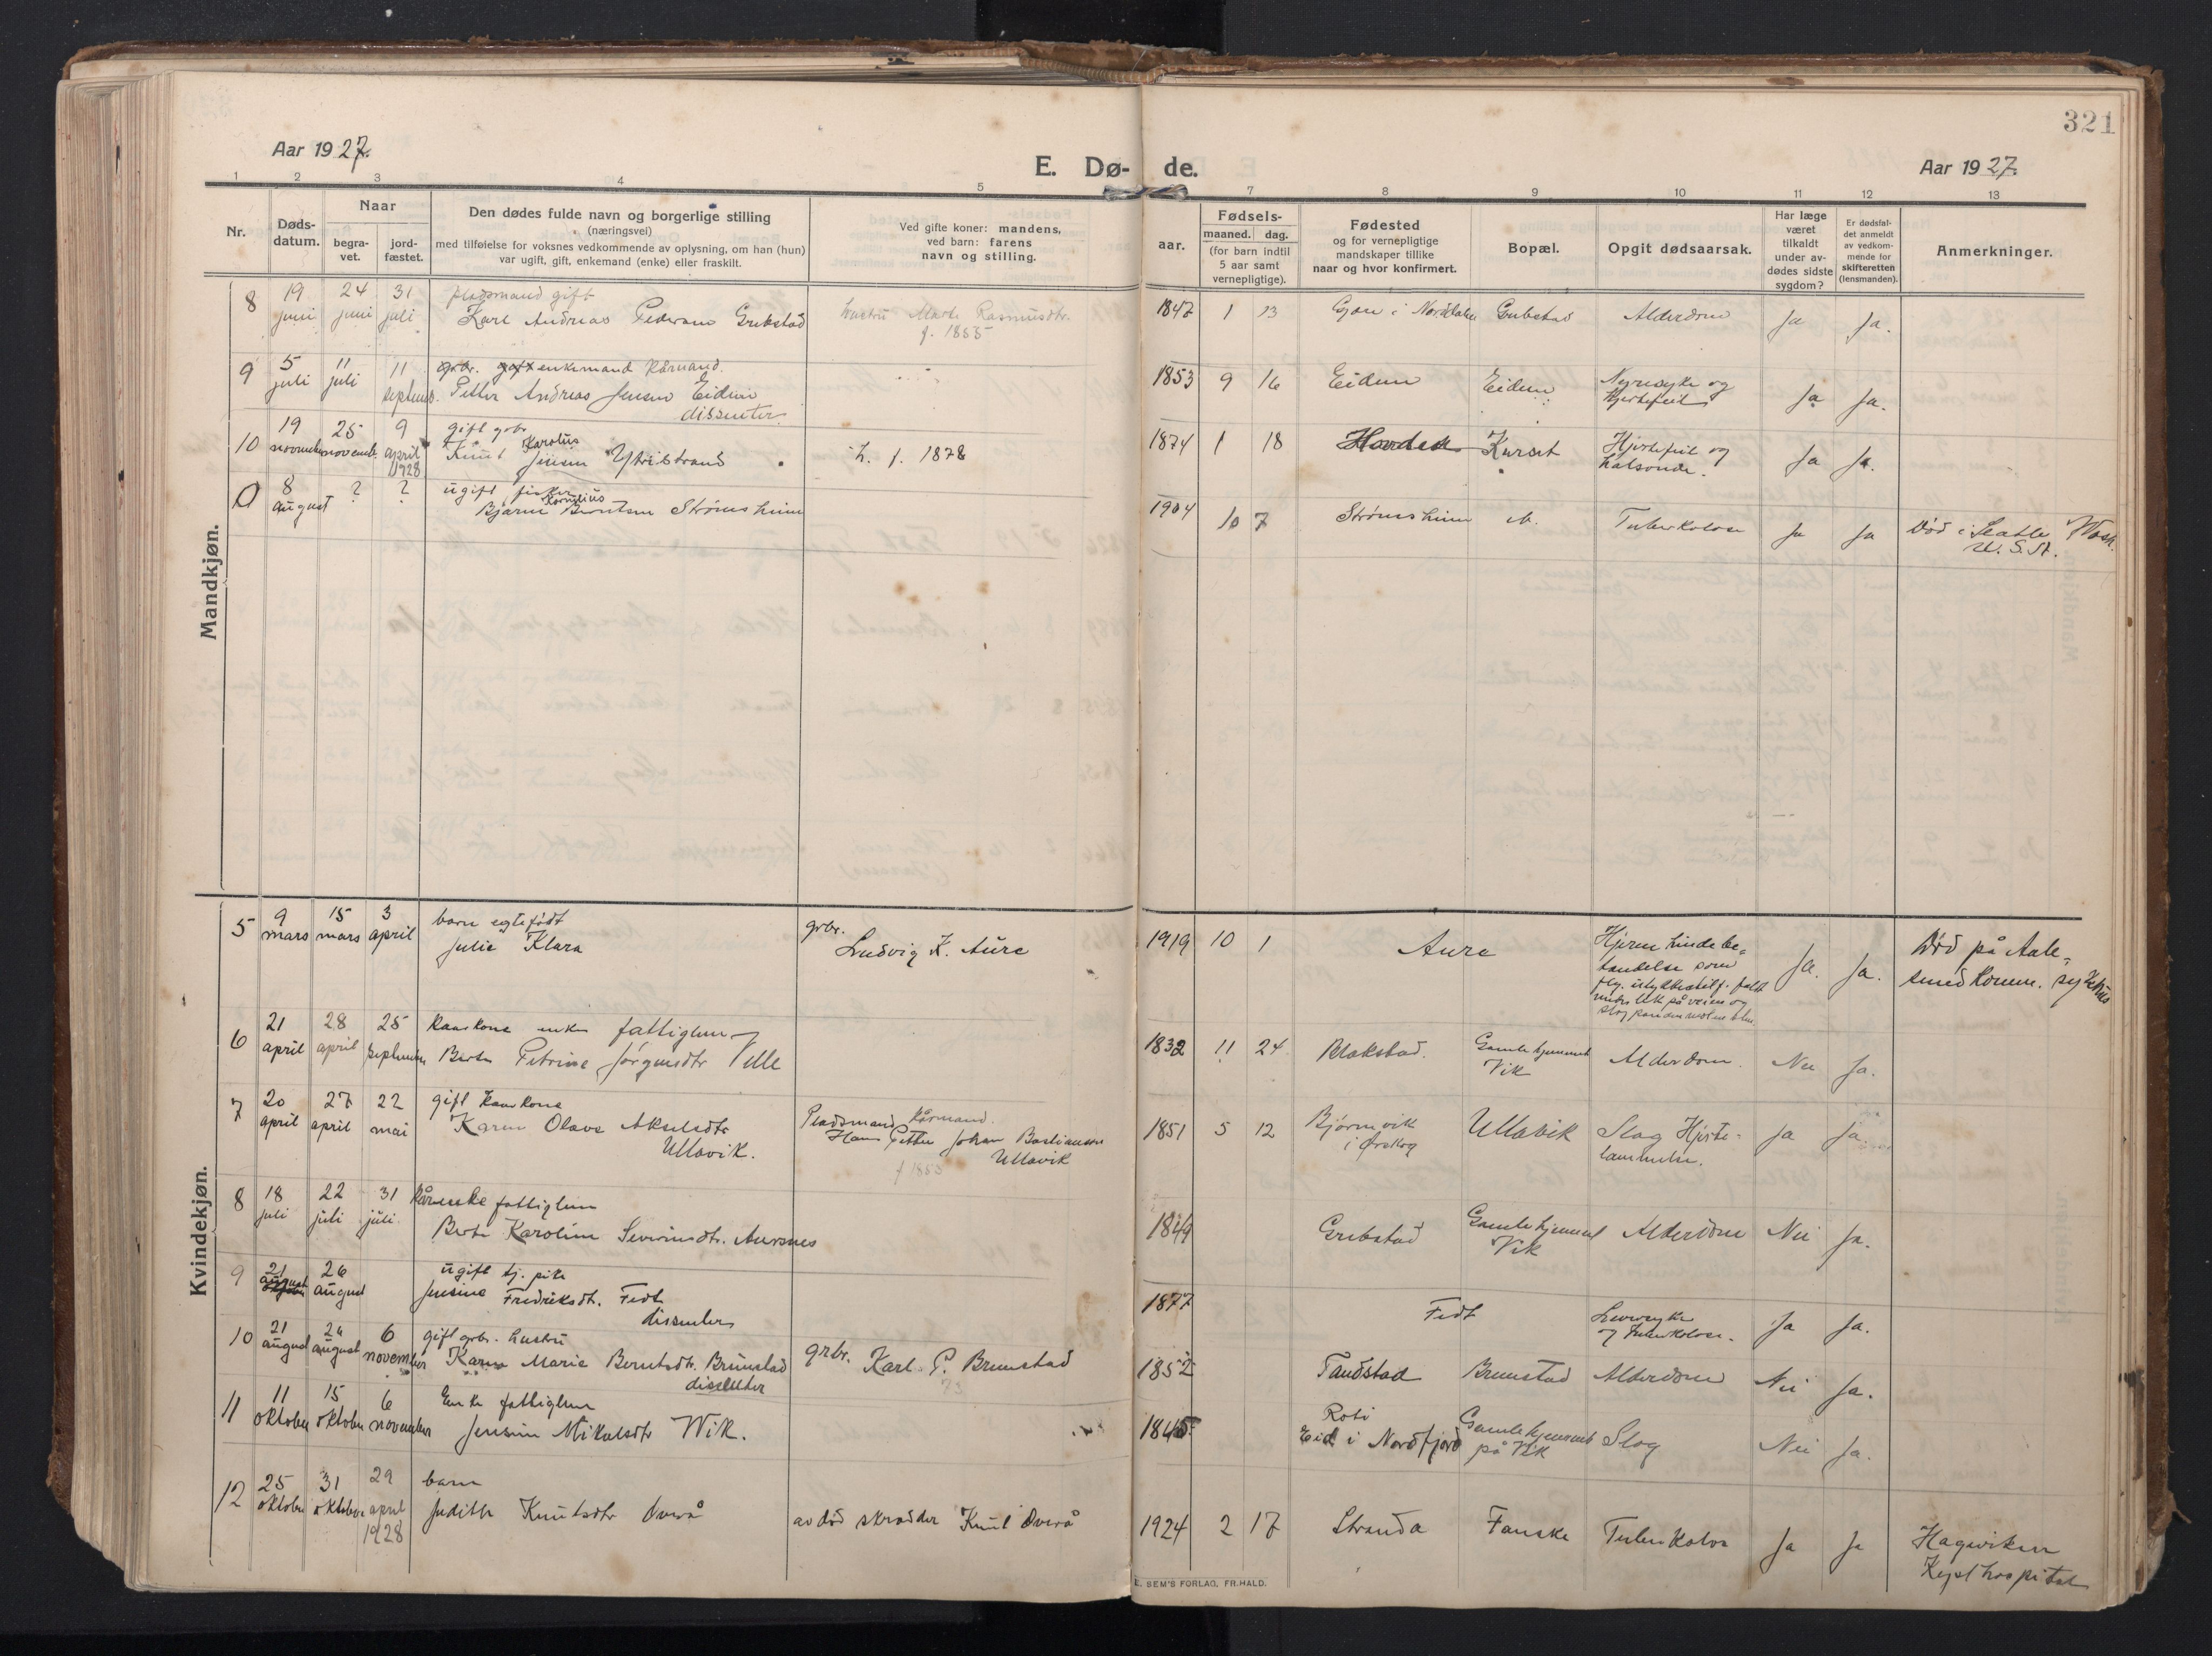 321
Aar 1927.
E. Dø- de.
Aar 1927.
1 2 3 4 5 7 8 9 10 11 12 13
Nr.
Døds-
datum.
Naar
begra-
vet.
jord-
fæstet.
Den dødes fulde navn og borgerlige stilling
(næringsvei)
med tilføielse for voksnes vedkommende av oplysning, om han (hun)
var ugift, gift, enkemand (enke) eller fraskilt.
Ved gifte koner: mandens,
ved barn: farens
navn og stilling.
aar.
Fødsels-
maaned. dag.
(for barn indtil
5 aar samt
vernepligtige).
Fødested
og for vernepligtige
mandskaper tillike
naar og hvor konfirmert.
Bopæl.
Opgit dødsaarsak.
Har læge
været
tilkaldt
under av-
dødes sidste
sygdom?
Er dødsfal-
det anmeldt
av vedkom-
mende for
skifteretten
(lensmanden).
Anmerkninger.
Mandkjøn.
8 19 juni 24 juni 31 juli
pladsmand gift
Karl Andreas Pedersen Grebstad
hustru Marte Rasmusdtr.
f. 1855
1847 1 23 i Norddalen Grebstad Alderdom Ja Ja.
9 5 juli 11 juli 11 septemb.
grbr. enkemand kårmand.
Petter Andreas Jensen Eidem
dissenter
1853 9 16 Eidem Eidem Nyresyke og
hjertefeil Ja Ja.
10 19 november 25 novemb. 9 april 1928
gift grbr.
Knut Karolus Jensen Ytrestrand
h. f. 1878
1874 1 18 Hovden Kurset Hjertefeil og
halsonde. Ja Ja.
0 8 august ? ?
ugift fisker
Bjarne Kornelius Berntsen Strømsheim
1904 10 7 Strømsheim Tuberkolose Ja Ja Død i Seatle Wash.
U. S. A.
Kvindekjøn.
5 9 mars 15 mars 3 april
barn egtefødt
Julie Klara
grbr.
Ludvig K. Aure
1919 10 1 Aure Ja. Ja. Død på Aale-
sund komm. sykehus
6 21 april 28 april 25 september
kaarkone enke fattiglem
Berte Petrine Jørgensdtr Velle
1832 11 24 Blakstad. Gamlehjemmet
Vik Alderdom. Nei Ja.
7 20 april 27 april 22 mai
gift kaarkone
Karen Olave Akselsdtr
Ullavik.
Pladsmand kårmand.
Hans Petter Johan Bastiansen
Ullavik
f 1855
1851 5 12 Bjørnvik
i Ørskog Ullavik Slag Hjerte-
lammelse. Ja Ja.
8 18 juli 22 juli 31 juli.
Kårenke fattiglem
Berte Karoline Severinsdtr. Aursnes
1849 Grebstad Gamlehjemmet
Vik Alderdom Nei Ja.
9 21 august 26 august
ugift tj. pike
Jensine Fredriksdt. Fedt
dissenter
1877 Fedt Leversyke
og Tuberkolose. Ja Ja.
10 21 august 24 august 6 november
gift grbr. hustru
Karen Marie Berntsdtr. Brunstad
dissenter
grbr. Karl P. Brunstad
73
1852 Tandstad Brunstad Alderdom Nei Ja.
11 11 oktober 15 oktober 6 november
Enke fattiglem
Jensine Mikalsdtr Wik.
1845 Roti
Eid i Nordfjord Gamlehjemmet
på Vik Slag Nei Ja.
12 25 oktober 31 oktober 29 april 1928
barn
Judith Knutsdtr Overå
avdød skrædder Knut Overå
1924 2 17 Stranda Fauske Tuberkolos Ja Ja Hagevikens
Kysthospital
E. SEM'S FORLAG, FR.HALD.